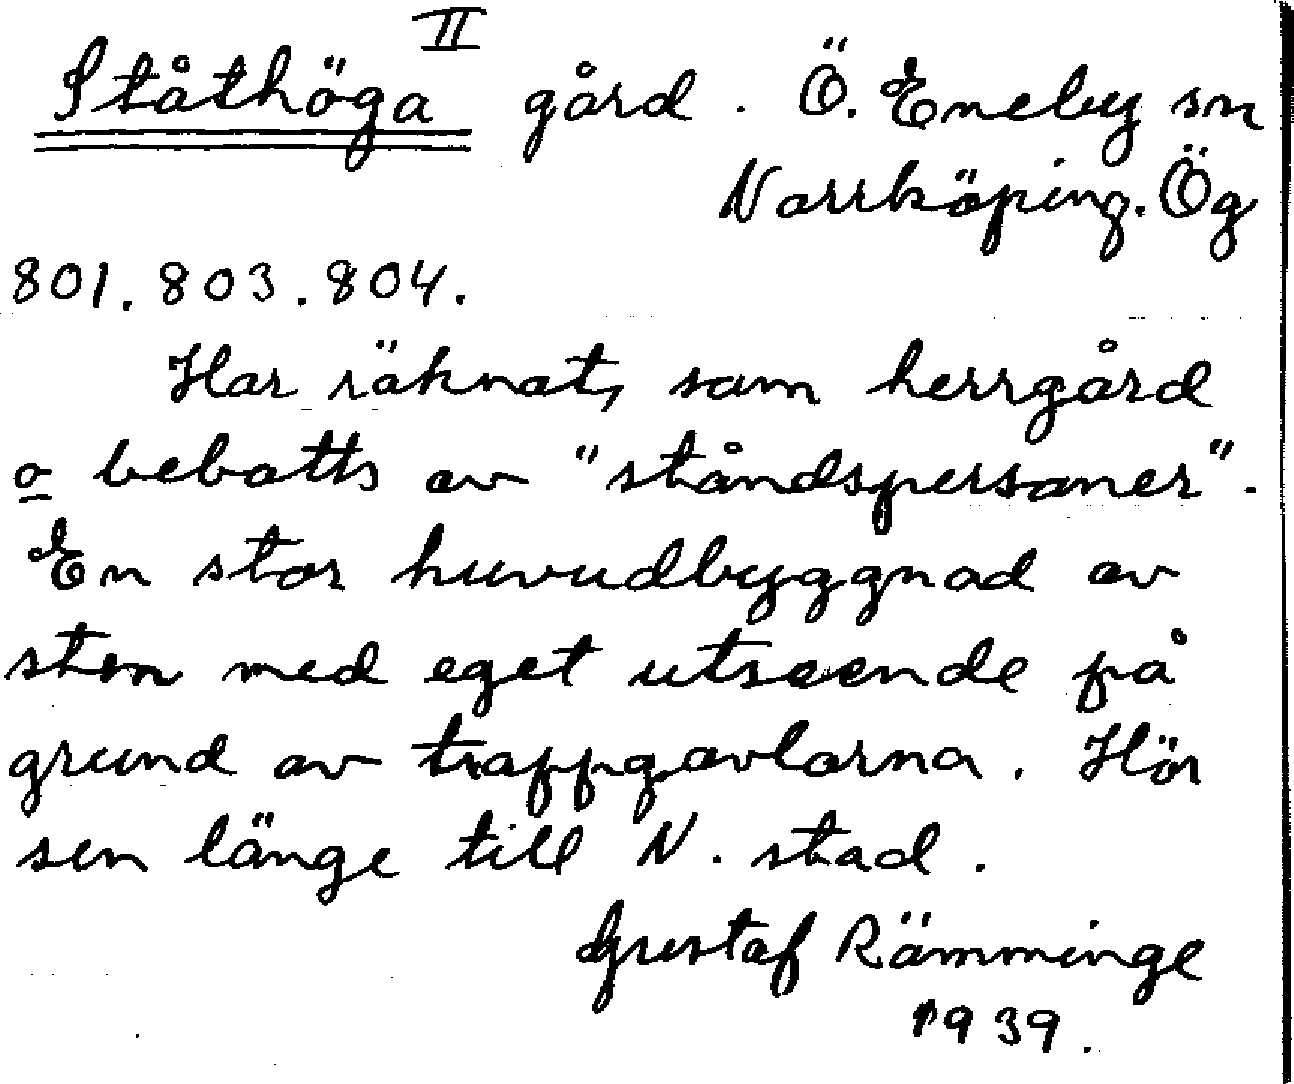 II
Ståthöga gård. Ö. Eneby sn
Norrköping. Ög
801. 803. 804.
Har räknat, som herrgård
o bebotts av "ståndspersoner".
En stor huvudbyggnad av
sten med eget utseende på
grund av trappgavlarna. Hör
sen länge till N. stad.
Gustaf Rämminge
1939.